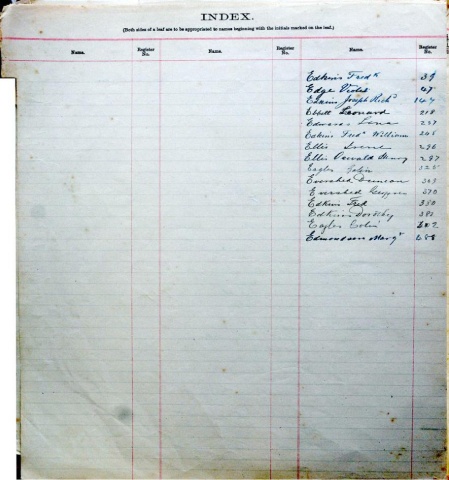 INDEX.
(Both sides of a leaf are to be appropriated to names beginning with the initials marked on the leaf.)
Name. Register No. Name. Register No. Name. Register No.
Edkins Fredk 39
Edge Violet 47
Edkins Joseph Richd 147
Ebbett Leonard 218
Edwards Lena 237
Edkins Fredk William 245
Ellis Irene 296
Ellis Oswald Mary 297
Eagles 325
Evershed Duncan
Evershed 370
Edkins Fred 380
Edkins Dorothy 382
Eagles Colin
Edmondson Margt